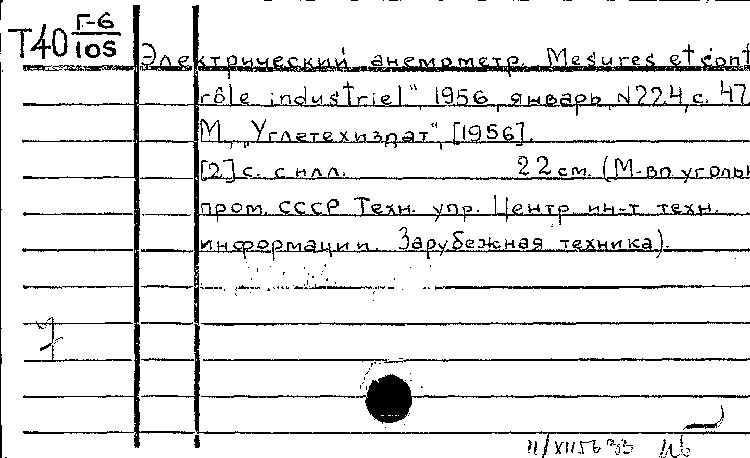 Т40 Г-6/105
Электрический анемометр. Mesures et cont
rôle industriel", 1956, январь, N224, с. 47.
М., "Углетехиздат", [1956].
[2] с. с илл. 22 см. (М-во угольн
пром. СССР Техн. упр. Центр. ин-т техн.
информации. Зарубежная техника).
7